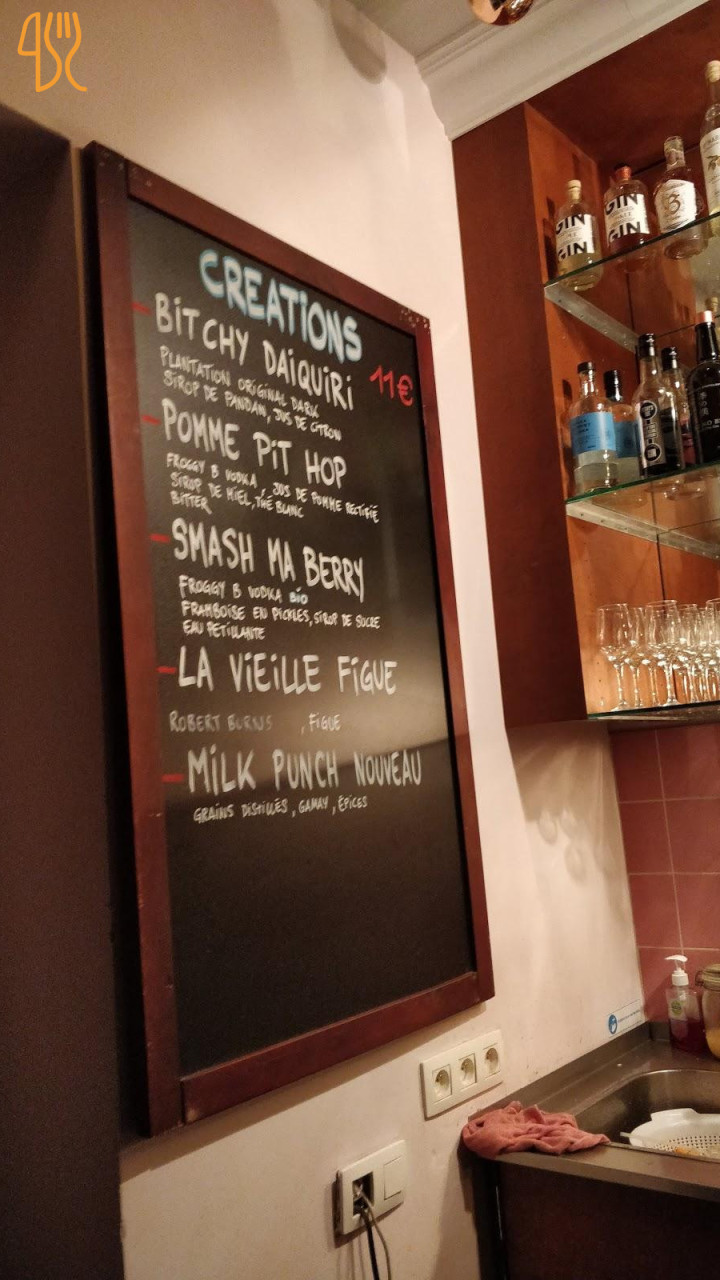 CREATIONS
BITCHY DAIQUIRI
11€
PLANTATION ORIGINAL DARK
SIROP DE PANDAN, JUS DE CITRON
POMME PIT HOP
FROGGY B VODKA JUS DE POMME RECTIFIÉ
SIROP DE MIEL, THÉ BLANC
BITTER
SMASH MA BERRY
FROGGY B VODKA BIO
FRAMBOISE EN PICKLES, SIROP DE SUCRE
EAU PETILLANTE
LA VIEILLE FIGUE
ROBERT BURNS , FIGUE
MILK PUNCH NOUVEAU
GRAINS DISTILLÉS, GAMAY, ÉPICES
GIN
GIN
GIN
GIN